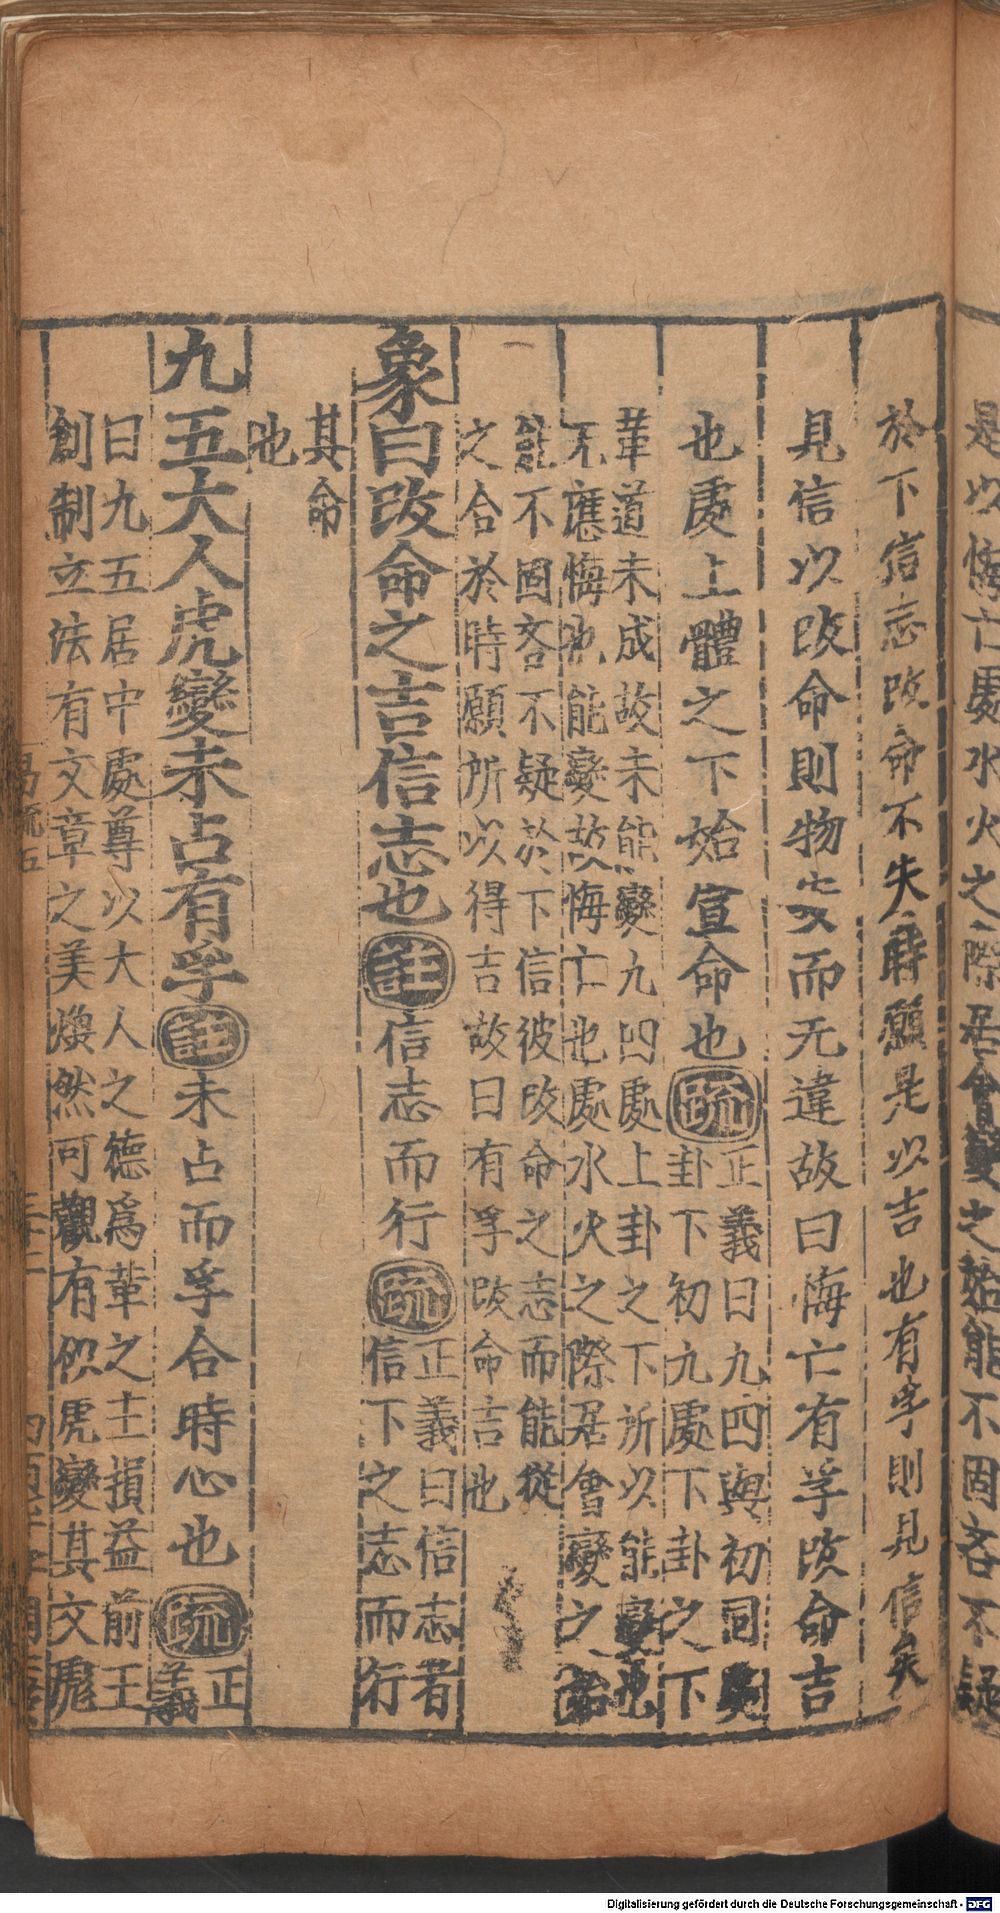 是以悔亡處水火之際居會變之始能不固吝不疑
於下信志改命不失時願是以吉也有孚則見信矣
見信以改命則物安而无違故曰悔亡有孚改命吉
也處上體之下始宣命也疏
正義曰九四與初同處
卦下初九處下卦之下
革道未成故未能變九四處上卦之下所以能變也
无應悔也能變故悔亡也處水火之際居會變之始
能不固吝不疑於下信彼改命之志而能從
之合於時願所以得吉故曰有孚改命吉也
象曰改命之吉信志也註信志而行疏
正義曰信志者
信下之志而行
其命
也
九五大人虎變未占有孚註未占而孚合時心也疏
正
義
曰九五居中處尊以大人之德爲革之主損益前王
創制立法有文章之美煥然可觀有似虎變其文彪
易疏五
Digitalisierung gefördert durch die Deutsche Forschungsgemeinschaft - DFG